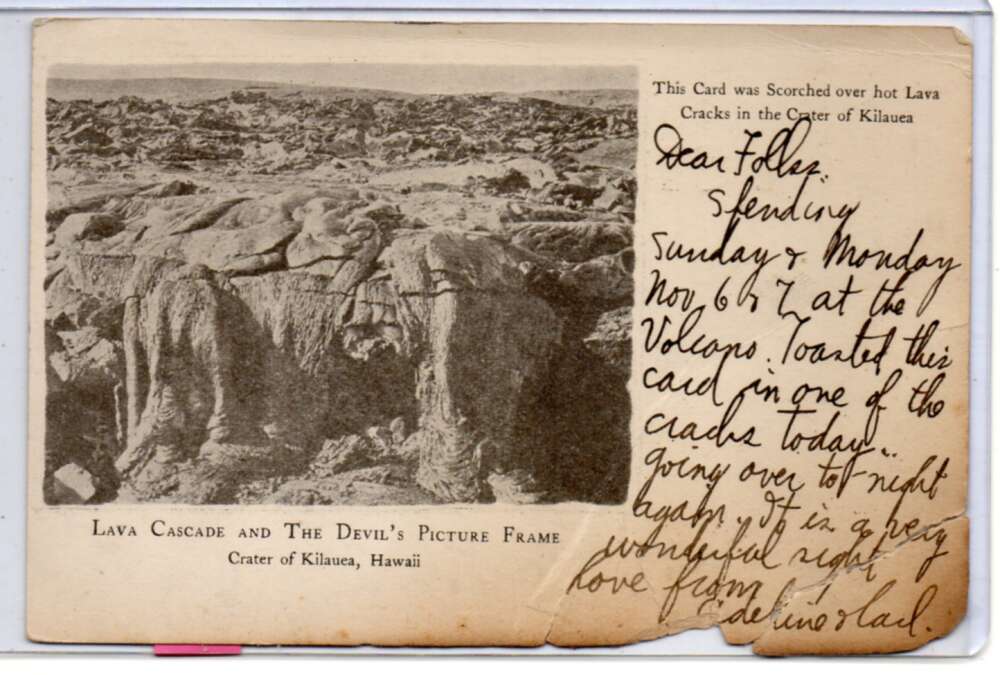 This Card was Scorched over hot Lava
Cracks in the Crater of Kilauea
Dear Folks.
Spending
Sunday & Monday
Nov 6 & 7 at the
Volcano. Toasted this
card in one of the
cracks today..
going over to-night
again. It is a very
wonderful sight
Love from
LAVA CASCADE AND THE DEVIL'S PICTURE FRAME
Crater of Kilauea, Hawaii